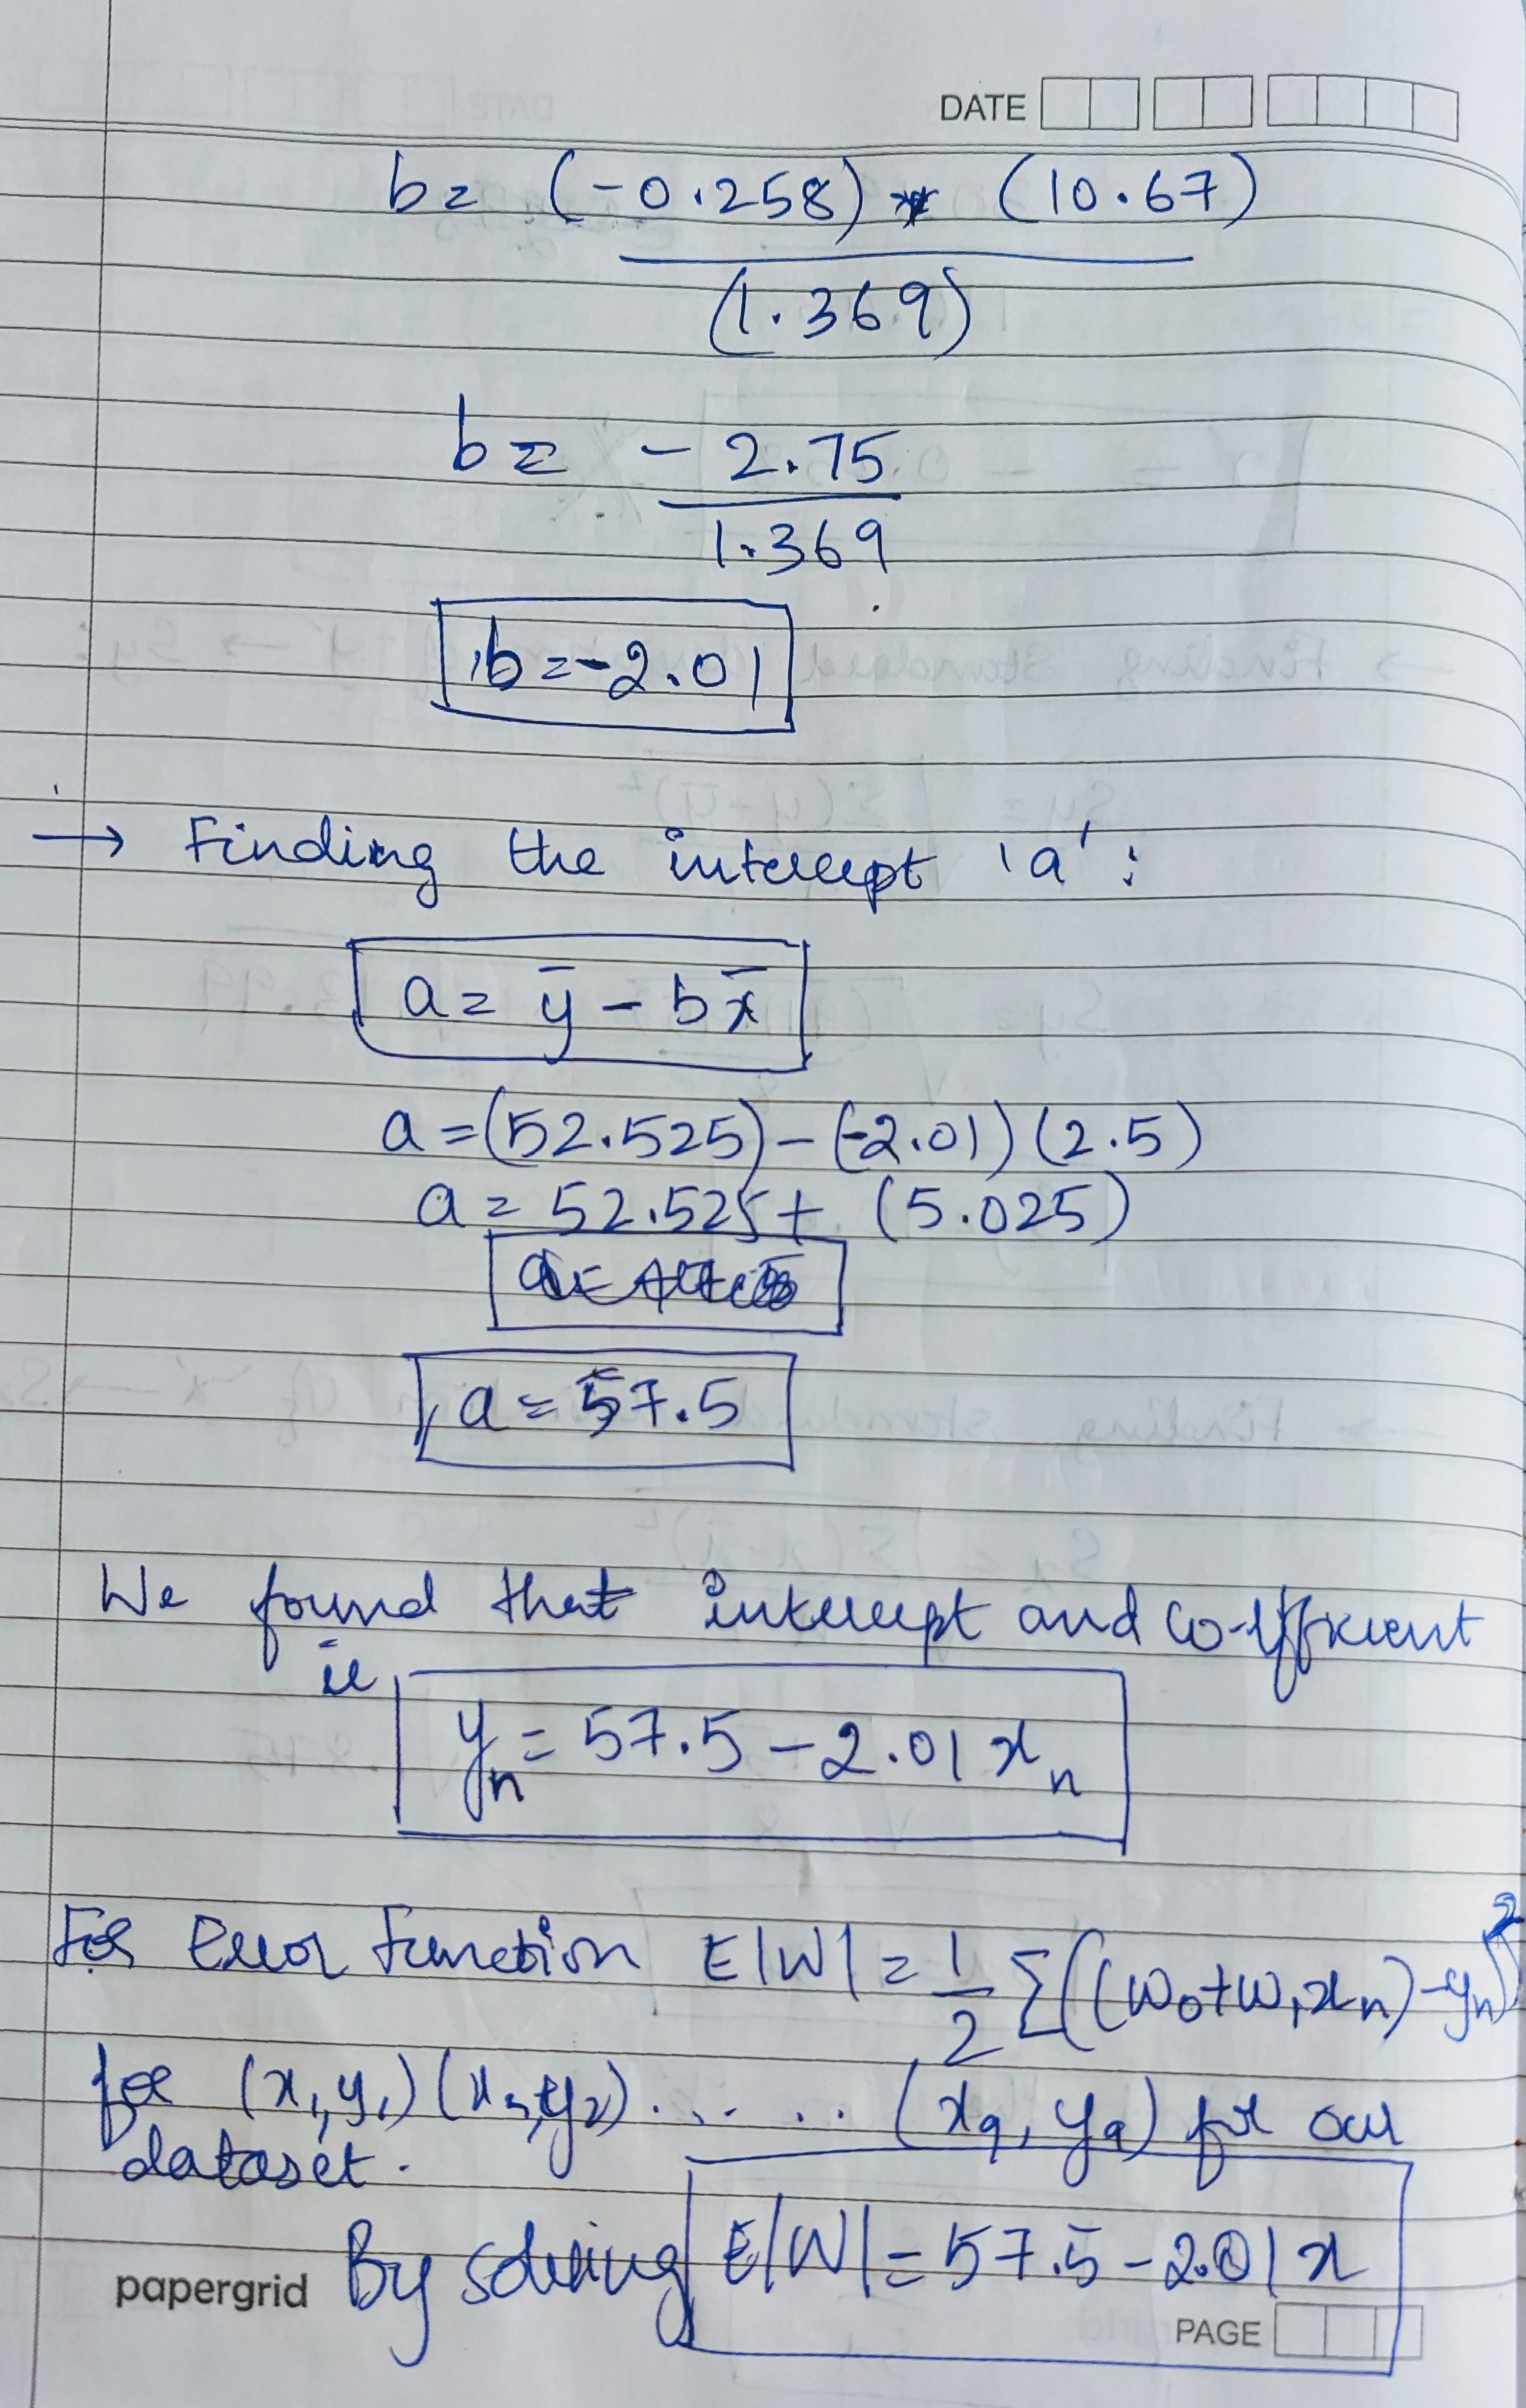 DATE
b= (-0.258) * (10.67)
(1.369)
b= -2.75
1.369
b=-2.01
→ Finding the intercept 'a':
a= ȳ - bx̄
a=(52.525)-(-2.01)(2.5)
a= 52.525+ (5.025)
a= 57.5
We found that intercept and co-efficient
is
yn= 57.5 - 2.01 xn
For Error Function E|W| = 1/2 Σ((w0+w1xn)-yn)²
for (x1,y1)(x2,y2)...... (x9, y9) for our
dataset.
By solving E|W| = 57.5-2.01x
papergrid
PAGE